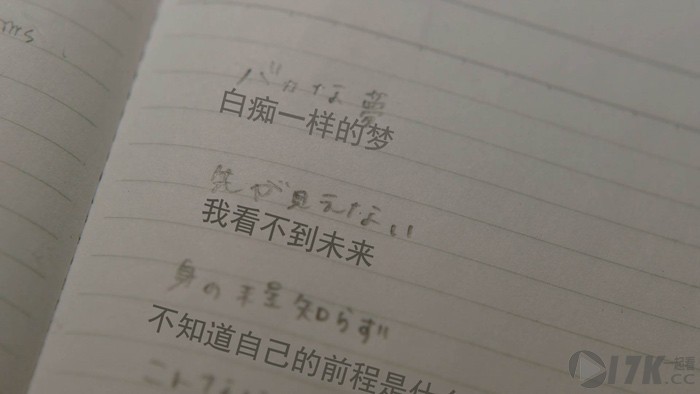 バカな夢
白痴一样的梦
先が見えない
我看不到未来
身の程知らず
不知道自己的前程是什
17K.CC